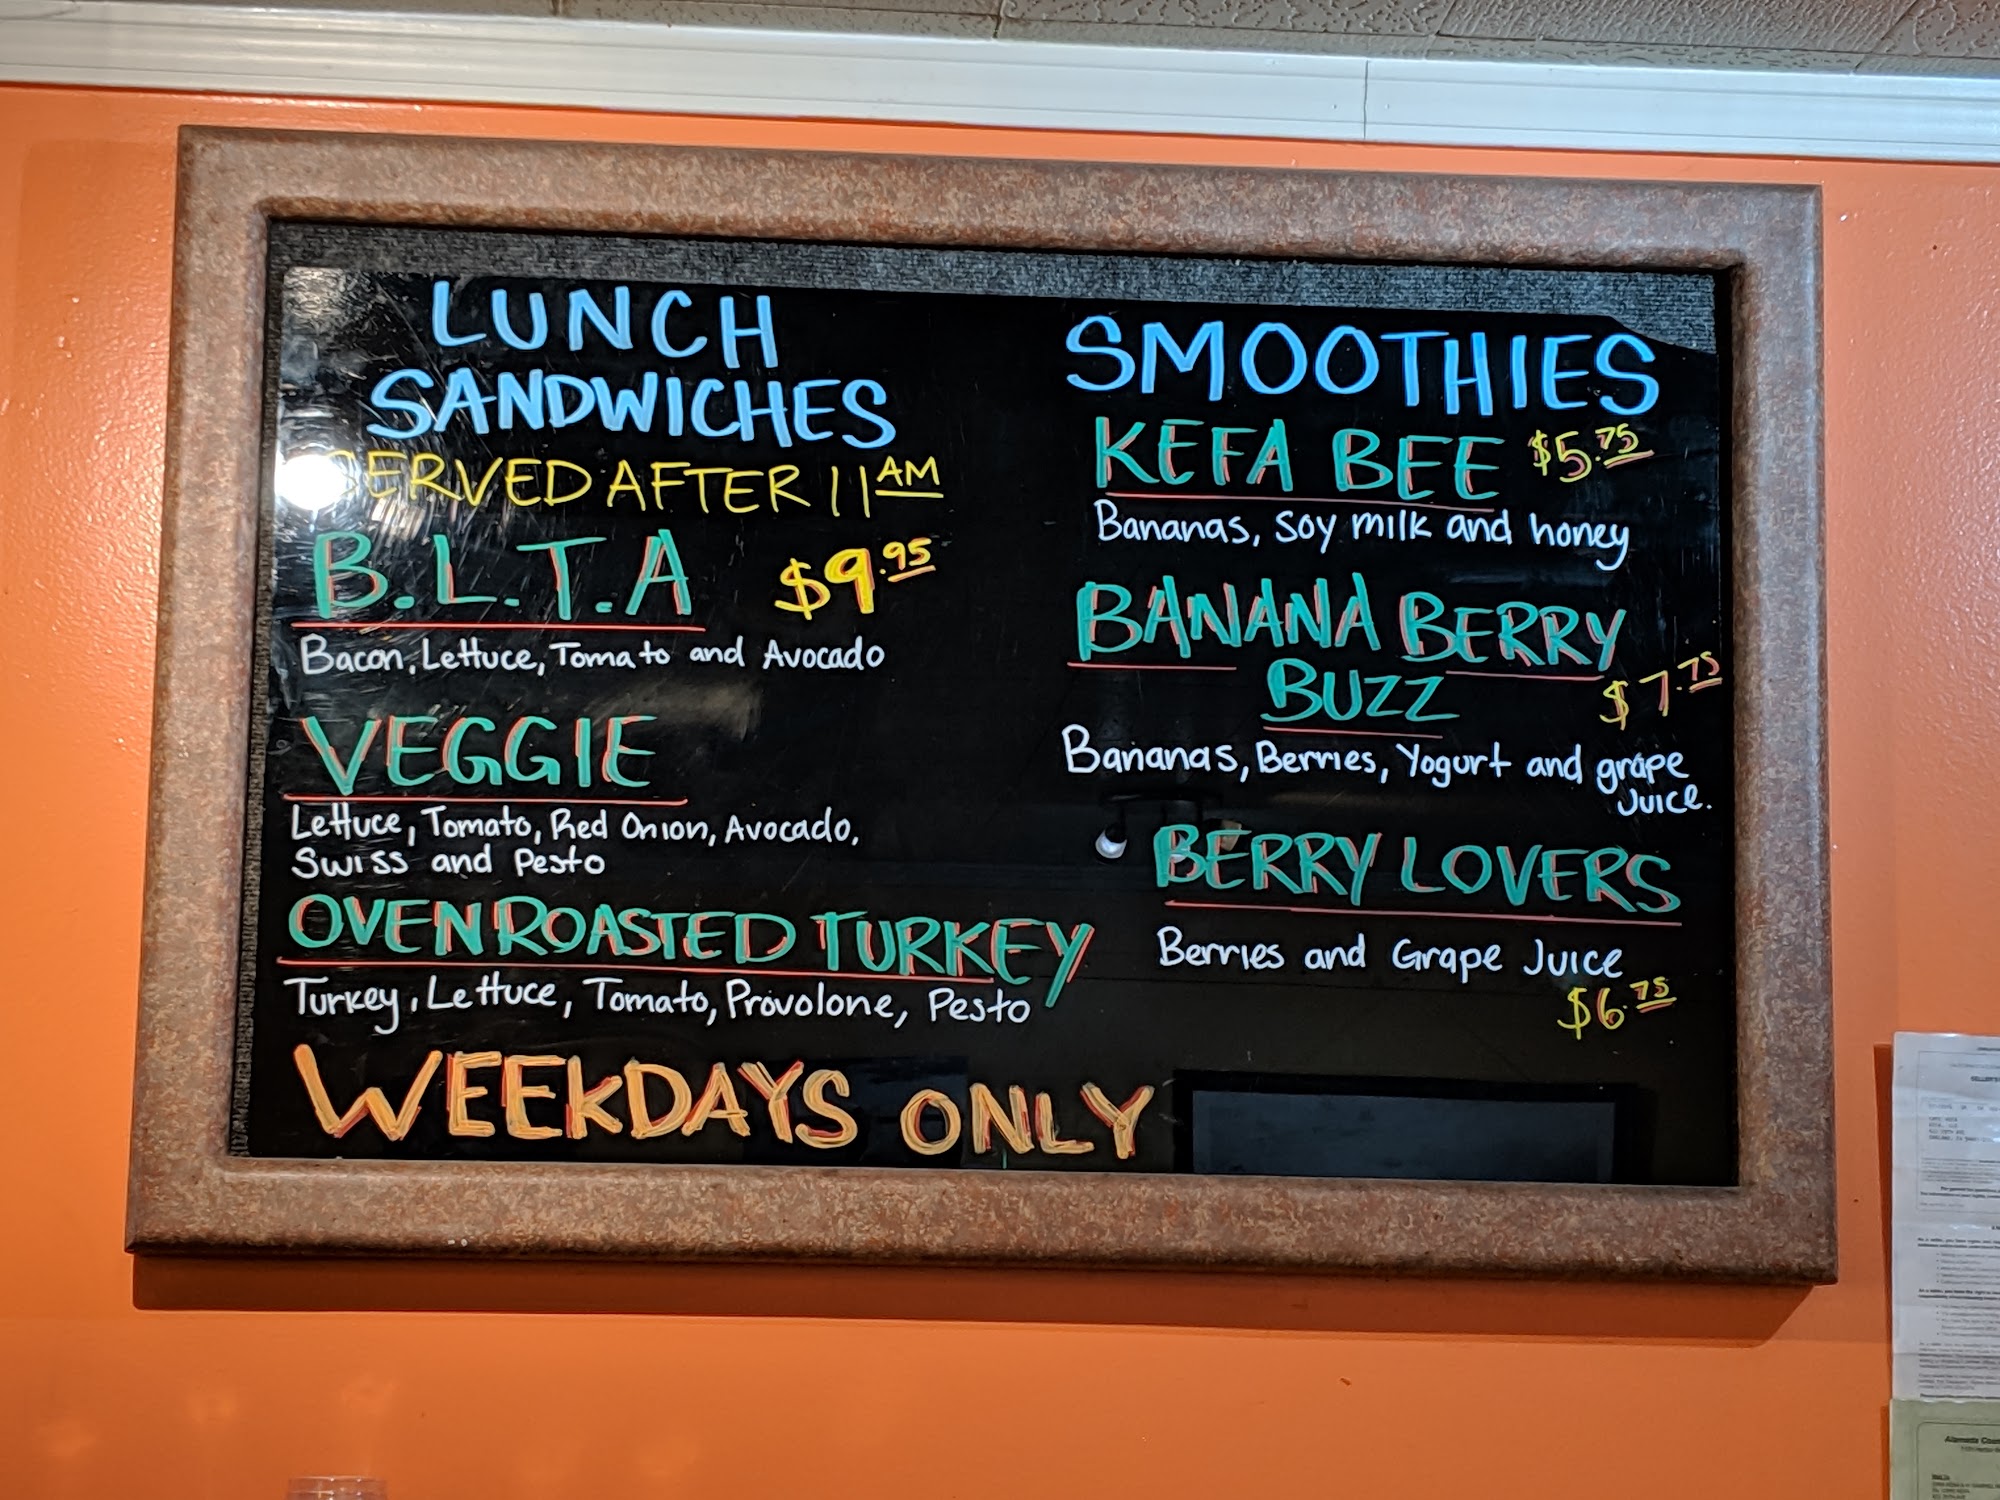 LUNCH
SANDWICHES
SERVED AFTER 11 AM
B.L.T.A $9.95
Bacon, Lettuce, Tomato and Avocado
VEGGIE
Lettuce, Tomato, Red Onion, Avocado,
Swiss and Pesto
OVEN ROASTED TURKEY
Turkey, Lettuce, Tomato, Provolone, Pesto
WEEKDAYS ONLY
SMOOTHIES
KEFA BEE $5.75
Bananas, Soy milk and honey
BANANA BERRY
BUZZ $7.75
Bananas, Berries, Yogurt and grape
Juice.
BERRY LOVERS
Berries and Grape Juice
$6.75